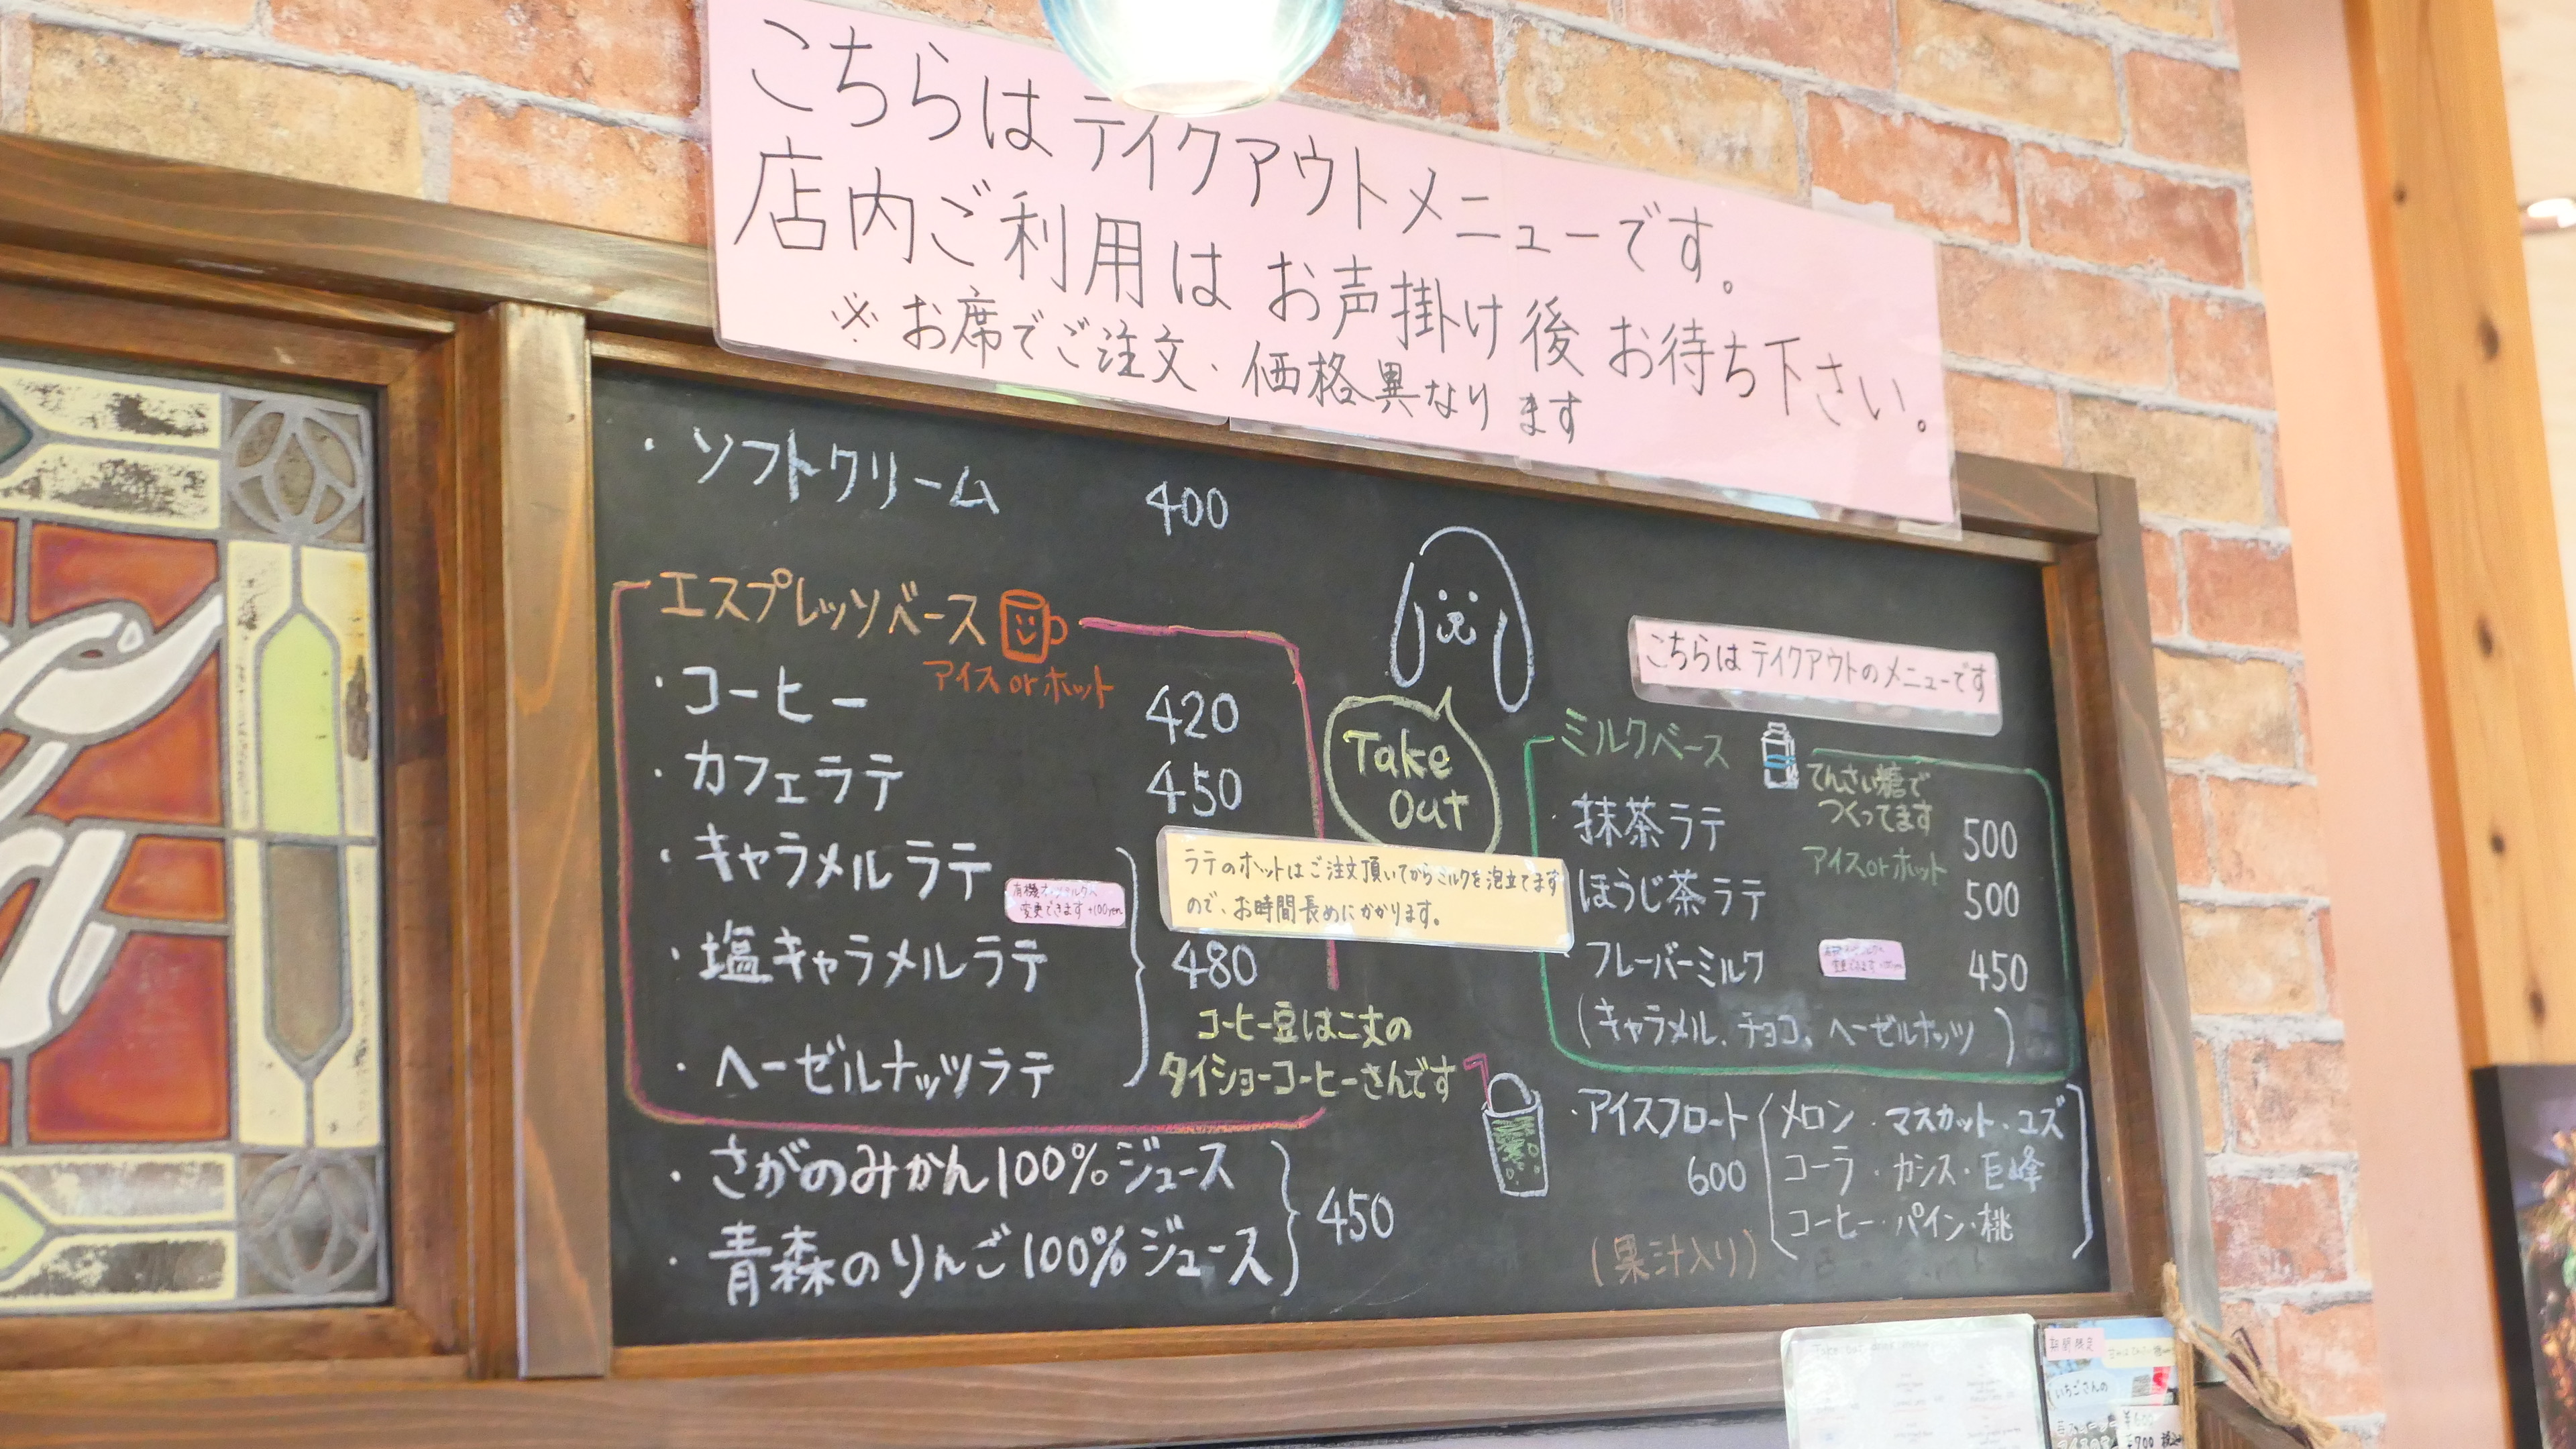 こちらは テイクアウトメニューです。
店内ご利用は お声掛け後 お待ち下さい。
※ お席でご注文・価格異なります
・ソフトクリーム 400
エスプレッソベース
アイス or ホット
・コーヒー 420
・カフェラテ 450
・キャラメルラテ
変更できます +100yen
・塩キャラメルラテ 480
・ヘーゼルナッツラテ
ラテのホットはご注文頂いてからミルクを泡立てます
ので、お時間長めにかかります。
コーヒー豆は二丈の
タイショーコーヒーさんです
・さがのみかん100%ジュース
・青森のりんご100%ジュース
450
Take
Out
こちらは テイクアウトのメニューです
ミルクベース
てんさい糖で
つくってます
アイス or ホット
・抹茶ラテ 500
・ほうじ茶ラテ 500
・フレーバーミルク 450
(キャラメル、チョコ、ヘーゼルナッツ)
・アイスフロート
600
(果汁入り)
メロン・マスカット・ユズ
コーラ・カシス・巨峰
コーヒー・パイン・桃
期間限定
いちごさんの